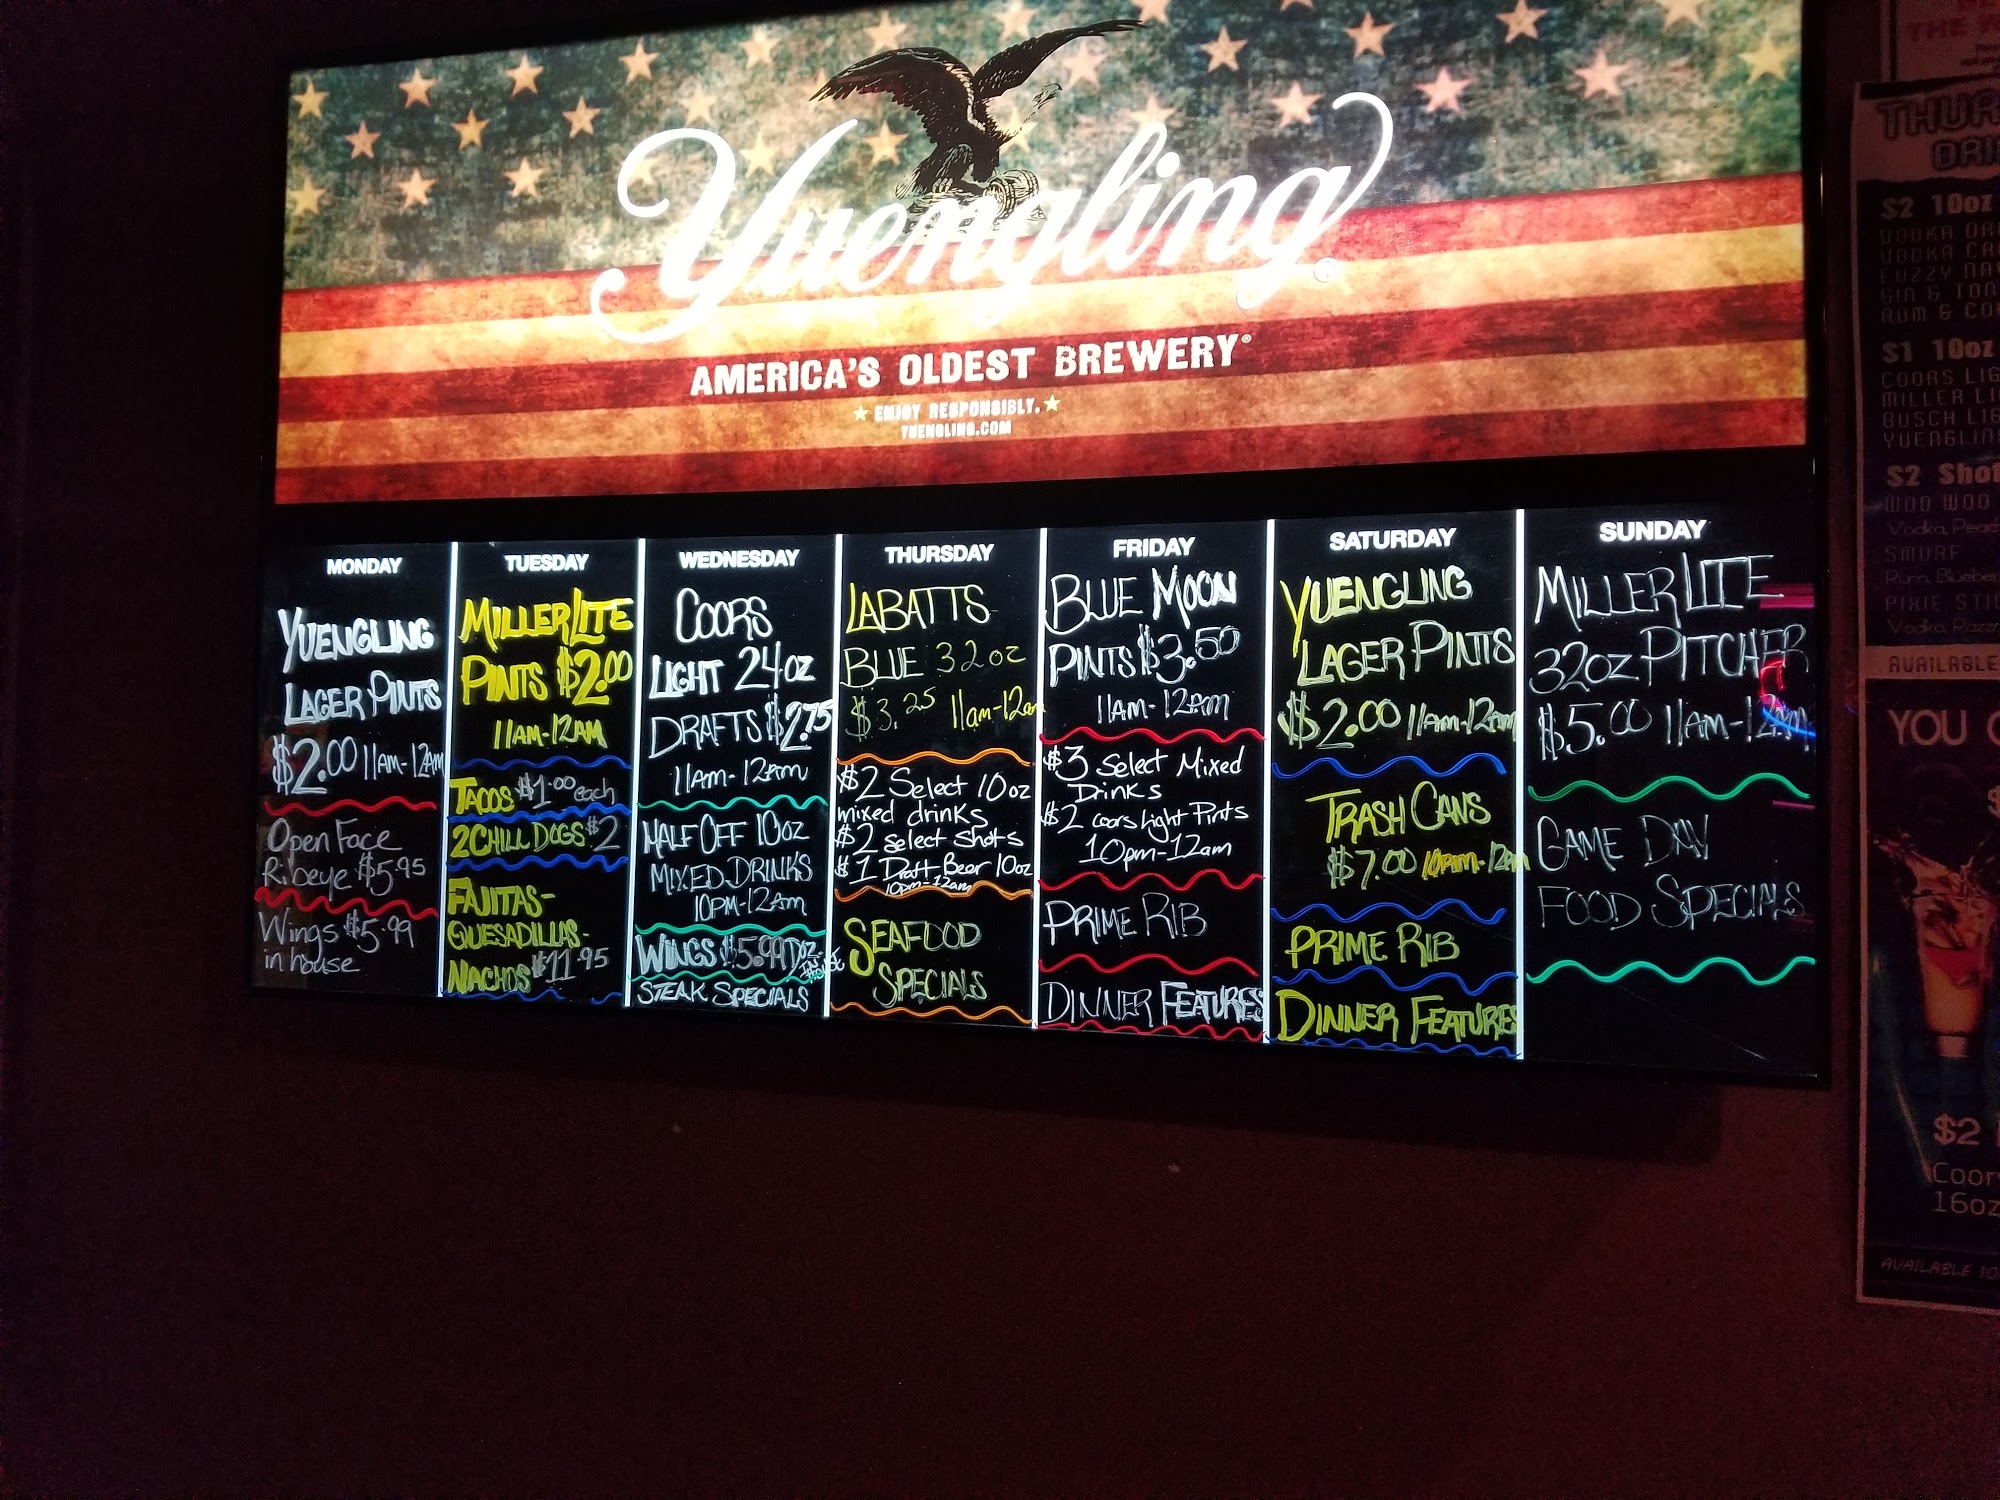 Yuengling
AMERICA'S OLDEST BREWERY®
ENJOY RESPONSIBLY.
YUENGLING.COM
MONDAY
YUENGLING
LAGER PINTS
$2.00 11AM-12AM
Open Face
Ribeye $5.95
Wings $5.99
in house
TUESDAY
MILLER LITE
PINTS $2.00
11AM-12AM
TACOS $1.00 each
2 CHILI DOGS $2
FAJITAS-
QUESADILLAS-
NACHOS $11.95
WEDNESDAY
COORS
LIGHT 24oz
DRAFTS $2.75
11AM-12AM
HALF OFF 10oz
MIXED DRINKS
10PM-12AM
WINGS $5.99 DOZ.
IN HOUSE
STEAK SPECIALS
THURSDAY
LABATTS
BLUE 32oz
$3.25 11am-12am
$2 Select 10oz
mixed drinks
$2 Select Shots
$1 Draft Beer 10oz
10pm-12am
SEAFOOD
SPECIALS
FRIDAY
BLUE MOON
PINTS $3.50
11AM-12AM
$3 Select Mixed
Drinks
$2 Coors Light Pints
10pm-12am
PRIME RIB
DINNER FEATURES
SATURDAY
YUENGLING
LAGER PINTS
$2.00 11AM-12AM
TRASH CANS
$7.00 10PM-12AM
PRIME RIB
DINNER FEATURES
SUNDAY
MILLER LITE
32oz PITCHER
$5.00 11AM-12AM
GAME DAY
FOOD SPECIALS
THE W
THUR
DRI
$2 10oz
VODKA
VODKA
FUZZY
GIN & TON
RUM & CO
$1 10oz
COORS LIG
MILLER LI
BUSCH LIG
YUENGLIN
$2 Shot
WOO WOO
Vodka, Peach
SMURF
Rum, Blueber
PIXIE STI
Vodka, Razz
AVAILABLE
YOU
$2
Coor
16oz
AVAILABLE 10